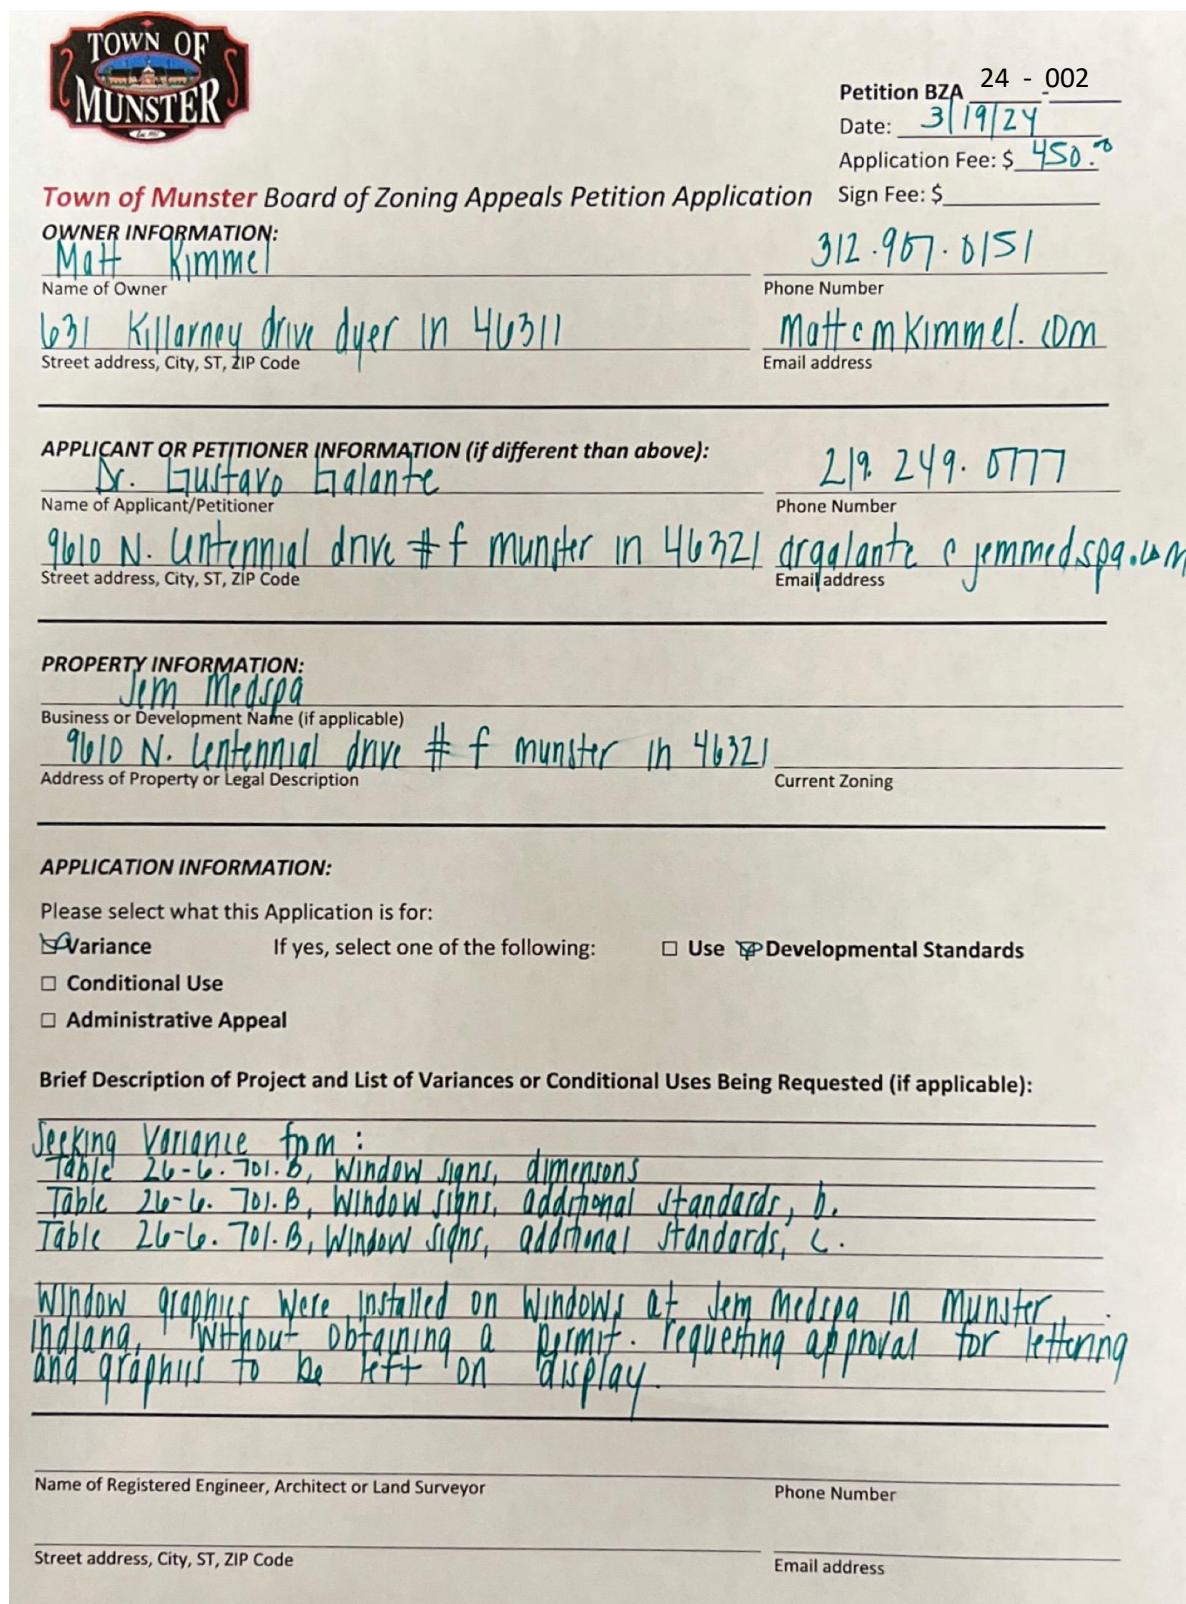 TOWN OF
MUNSTER
Petition BZA 24 - 002
Date: 3/19/24
Application Fee: $ 450.00
Town of Munster Board of Zoning Appeals Petition Application
Sign Fee: $
OWNER INFORMATION:
Matt Kimmel 312.907.0151
Name of Owner Phone Number
631 Killarney drive dyer in 46311 mattcmkimmel.com
Street address, City, ST, ZIP Code Email address
APPLICANT OR PETITIONER INFORMATION (if different than above):
Dr. Gustavo Galante 219. 249. 0777
Name of Applicant/Petitioner Phone Number
9610 N. Centennial drive # f munster in 46321 drgalante c jemmedspa.com
Street address, City, ST, ZIP Code Email address
PROPERTY INFORMATION:
Jem Medspa
Business or Development Name (if applicable)
9610 N. Centennial drive # f munster in 46321
Address of Property or Legal Description Current Zoning
APPLICATION INFORMATION:
Please select what this Application is for:
☑ Variance If yes, select one of the following: ☐ Use ☑ Developmental Standards
☐ Conditional Use
☐ Administrative Appeal
Brief Description of Project and List of Variances or Conditional Uses Being Requested (if applicable):
Seeking Variance from :
Table 26-6.701.B, Window signs, dimensons
Table 26-6.701.B, Window signs, additional standards, b.
Table 26-6.701.B, Window signs, additional standards, c.
Window graphics were installed on windows at Jem Medspa in Munster,
indiana, without obtaining a permit. requesting approval for lettering
and graphics to be left on display.
Name of Registered Engineer, Architect or Land Surveyor Phone Number
Street address, City, ST, ZIP Code Email address